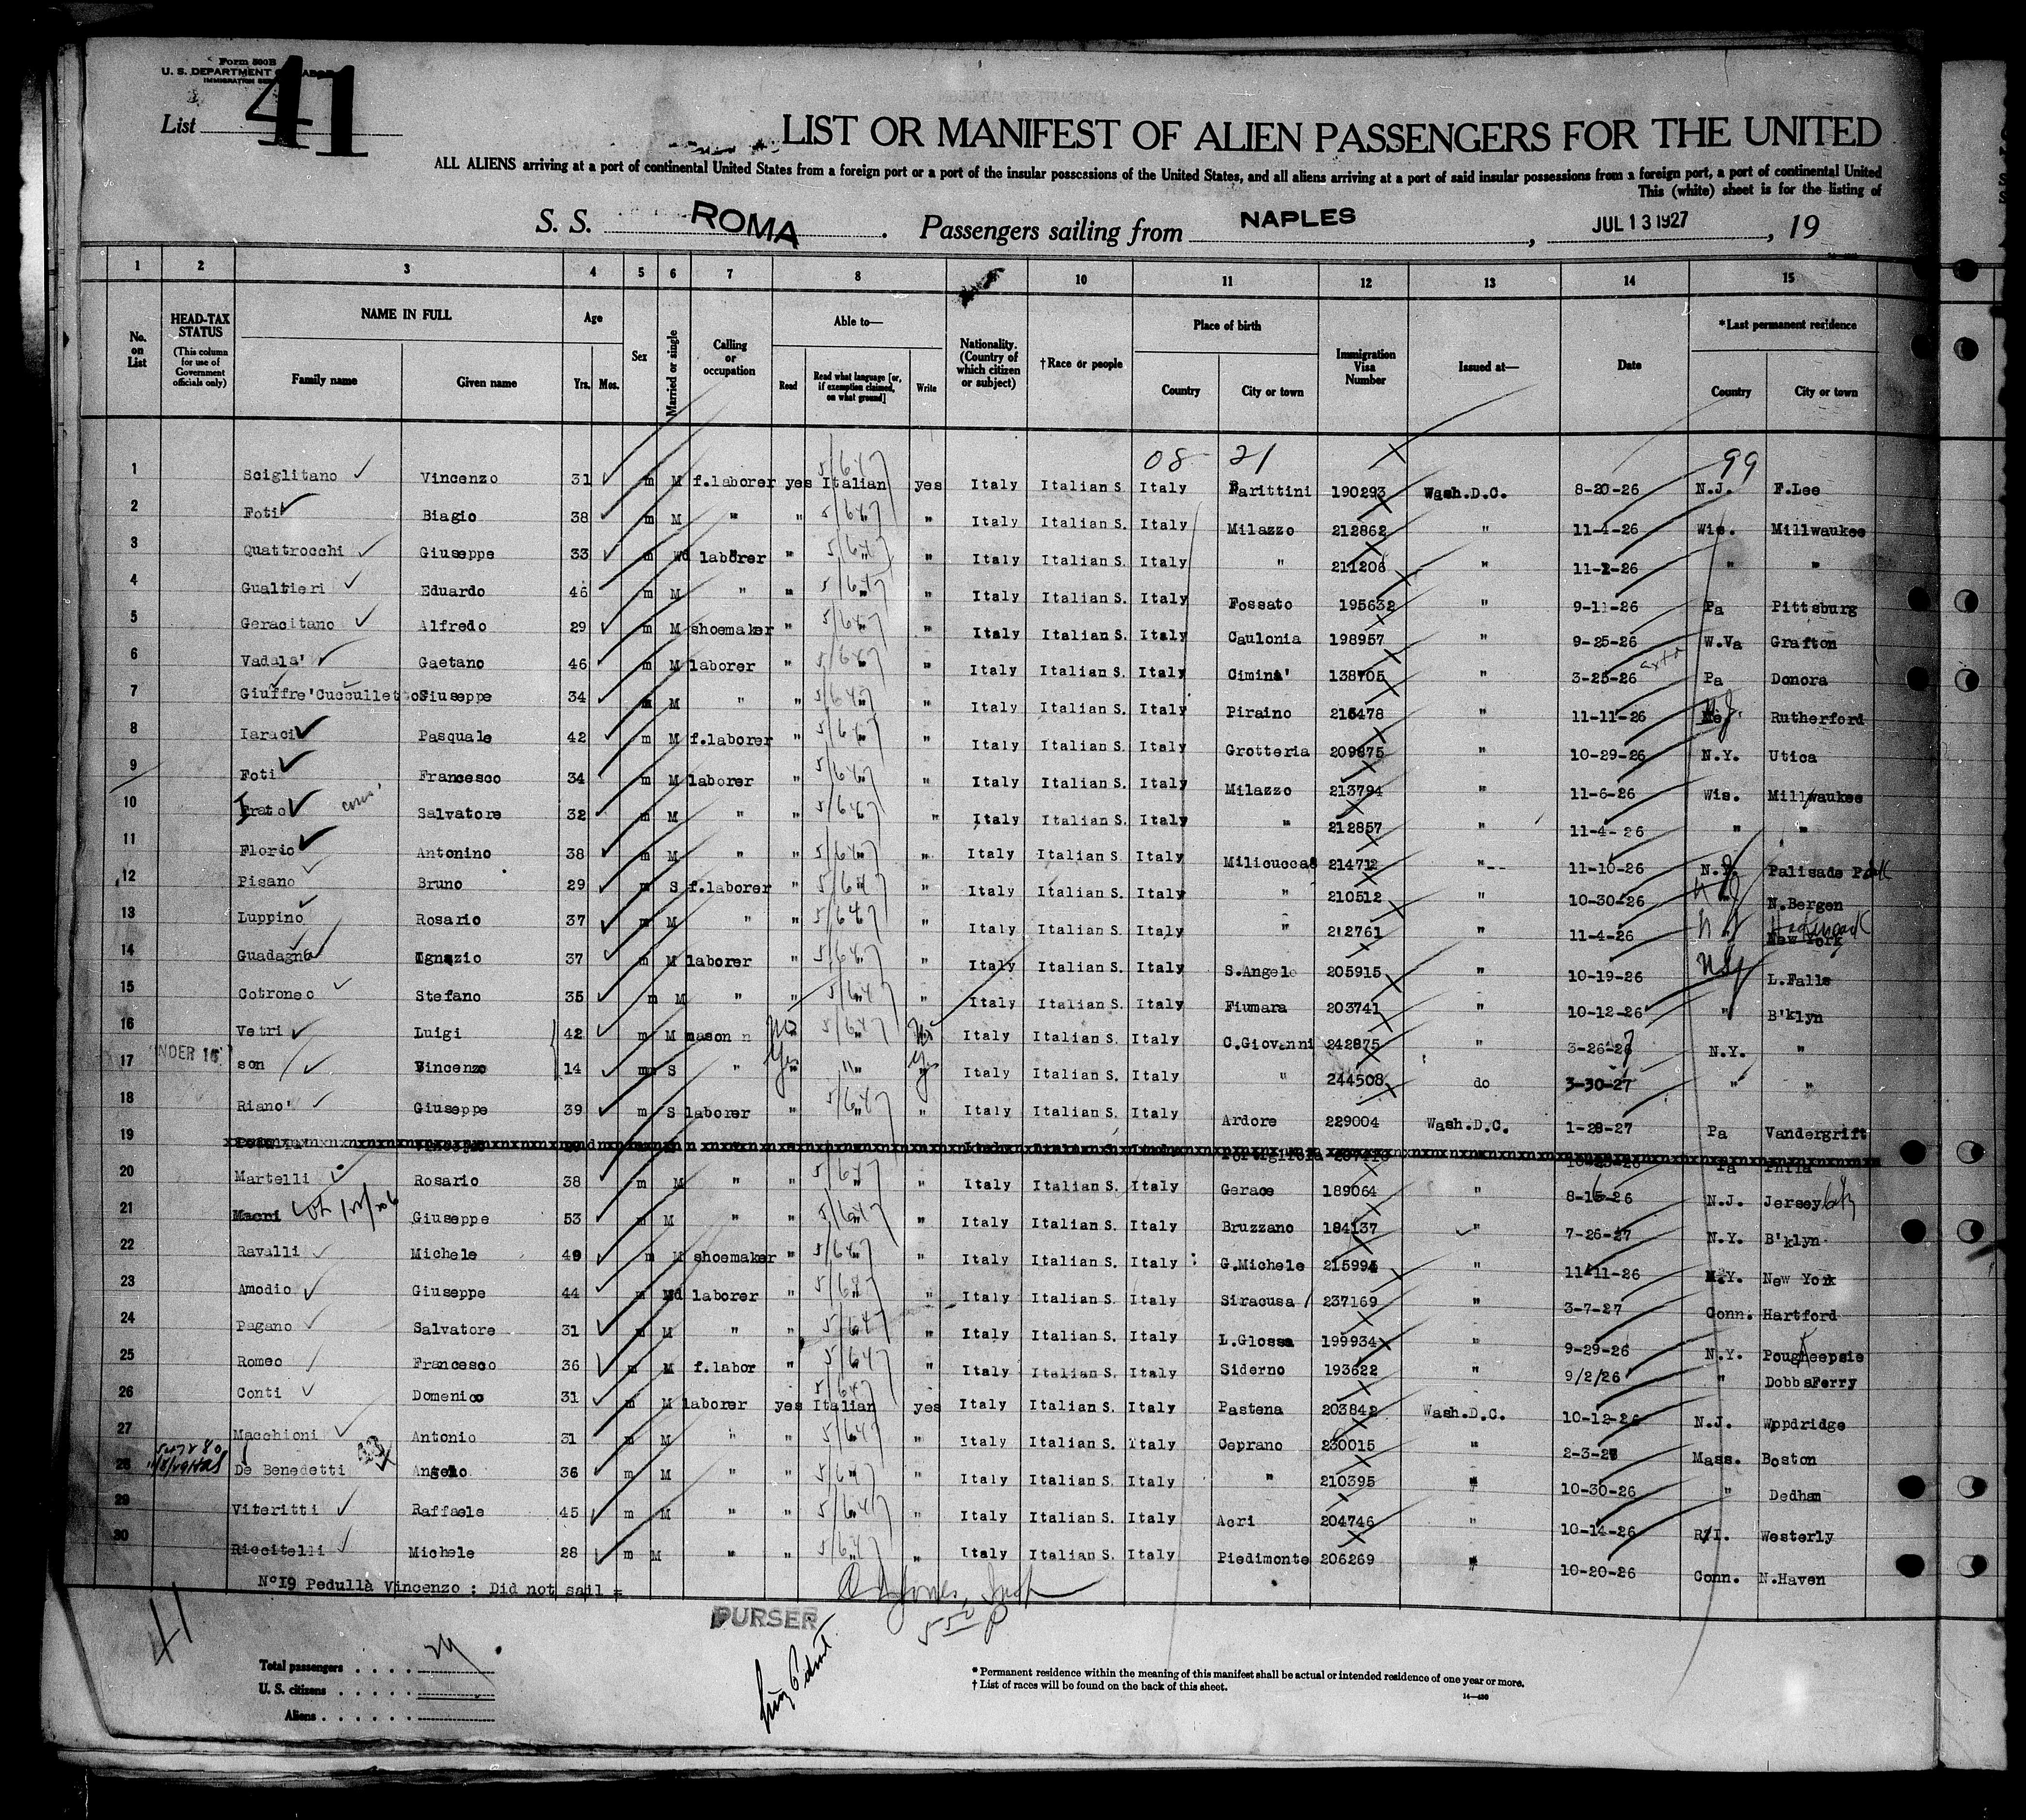 Form 500B
U. S. DEPARTMENT OF LABOR
IMMIGRATION
List 41
LIST OR MANIFEST OF ALIEN PASSENGERS FOR THE UNITED
ALL ALIENS arriving at a port of continental United States from a foreign port or a port of the insular possessions of the United States, and all aliens arriving at a port of said insular possessions from a foreign port, a port of continental United
This (white) sheet is for the listing of
S. S. ROMA. Passengers sailing from NAPLES, JUL 13 1927, 19
1 2 3 4 5 6 7 8 10 11 12 13 14 15
No. on List HEAD-TAX STATUS (This column for use of Government officials only) NAME IN FULL Family name Given name Age Yrs. Mos. Sex Married or single Calling or occupation Able to— Read Read what language [or, if exemption claimed, on what ground] Write Nationality. (Country of which citizen or subject) †Race or people Place of birth Country City or town Immigration Visa Number Issued at— Date *Last permanent residence Country City or town
08 21 99
1 Sciglitano Vincenzo 31 m M f.laborer yes Italian yes Italy Italian S. Italy Barittini 190293 Wash.D.C. 8-20-26 N.J. F.Lee
2 Foti Biagio 38 m M " " " " Italy Italian S. Italy Milazzo 212862 " 11-4-26 Wis. Millwaukee
3 Quattrocchi Giuseppe 33 m Wd laborer " " " Italy Italian S. Italy " 211206 " 11-2-26 " "
4 Gualtieri Eduardo 46 m M " " " " Italy Italian S. Italy Fossato 195632 " 9-11-26 Pa Pittsburg
5 Geracitano Alfredo 29 m M shoemaker " " " Italy Italian S. Italy Caulonia 198957 " 9-25-26 W.Va Grafton
6 Vadala' Gaetano 46 m M laborer " " " Italy Italian S. Italy Cimina' 138705 " 3-25-26 Pa Donora
7 Giuffre'Cucculletto Giuseppe 34 m M " " " " Italy Italian S. Italy Piraino 215478 " 11-11-26 N.J. Rutherford
8 Iaraci Pasquale 42 m M f.laborer " " " Italy Italian S. Italy Grotteria 209875 " 10-29-26 N.Y. Utica
9 Foti Francesco 34 m M laborer " " " Italy Italian S. Italy Milazzo 213794 " 11-6-26 Wis. Millwaukee
10 Irato Salvatore 32 m M " " " " Italy Italian S. Italy " 212857 " 11-4-26 " "
11 Florio Antonino 38 m M " " " " Italy Italian S. Italy Milicuccas 214712 " 11-10-26 N.J. Palisade Park
12 Pisano Bruno 29 m S f.laborer " " " Italy Italian S. Italy " 210512 " 10-30-26 N.J. N.Bergen
13 Luppino Rosario 37 m M " " " " Italy Italian S. Italy " 212761 " 11-4-26 N J New York
14 Guadagna Ignazio 37 m M laborer " " " Italy Italian S. Italy S.Angelo 205915 " 10-19-26 L.Falls
15 Cotroneo Stefano 35 m M " " " " Italy Italian S. Italy Fiumara 203741 " 10-12-26 " B'klyn
16 Vetri Luigi 42 m M mason No " No Italy Italian S. Italy C.Giovanni 242875 " 3-26-27 N.Y. "
UNDER 16
17 son Vincenzo 14 m S " Yes " Yes Italy Italian S. Italy " 244508 do 3-30-27 " "
18 Riano' Giuseppe 39 m S laborer " " " Italy Italian S. Italy Ardore 229004 Wash.D.C. 1-28-27 Pa Vandergrift
19 Phila
20 Martelli Rosario 38 m M " " " " Italy Italian S. Italy Gerace 189064 " 8-16-26 N.J. Jersey City
21 Macri Giuseppe 53 m M " " " " Italy Italian S. Italy Bruzzano 184137 " 7-26-27 N.Y. B'klyn
22 Ravalli Michele 49 m M shoemaker " " " Italy Italian S. Italy G.Michele 215994 " 11-11-26 N.Y. New York
23 Amodio Giuseppe 44 m Wd laborer " " " Italy Italian S. Italy Siracusa 237169 " 3-7-27 Conn. Hartford
24 Pagano Salvatore 31 m M " " " " Italy Italian S. Italy L.Glossa 199934 " 9-29-26 N.Y. Poughkeepsie
25 Romeo Francesco 36 m M f.labor " " Italy Italian S. Italy Siderno 193622 " 9/2/26 " DobbsFerry
26 Conti Domenico 31 m M laborer yes Italian yes Italy Italian S. Italy Pastena 203842 Wash.D.C. 10-12-26 N.J. Wppdridge
27 Macchioni Antonio 31 m M " " " " Italy Italian S. Italy Ceprano 230015 " 2-3-27 Mass. Boston
28 De Benedetti Angelo 36 m M " " " " Italy Italian S. Italy " 210395 " 10-30-26 " Dedham
29 Viteritti Raffaele 45 m M " " " " Italy Italian S. Italy Acri 204746 " 10-14-26 R.I. Westerly
30 Riccitelli Michele 28 m M " " " " Italy Italian S. Italy Piedimonte 206269 " 10-20-26 Conn. N.Haven
N°19 Pedullà Vincenzo : Did not sail =
PURSER
41
Total passengers
U. S. citizens
Aliens
* Permanent residence within the meaning of this manifest shall be actual or intended residence of one year or more.
† List of races will be found on the back of this sheet.
14—430